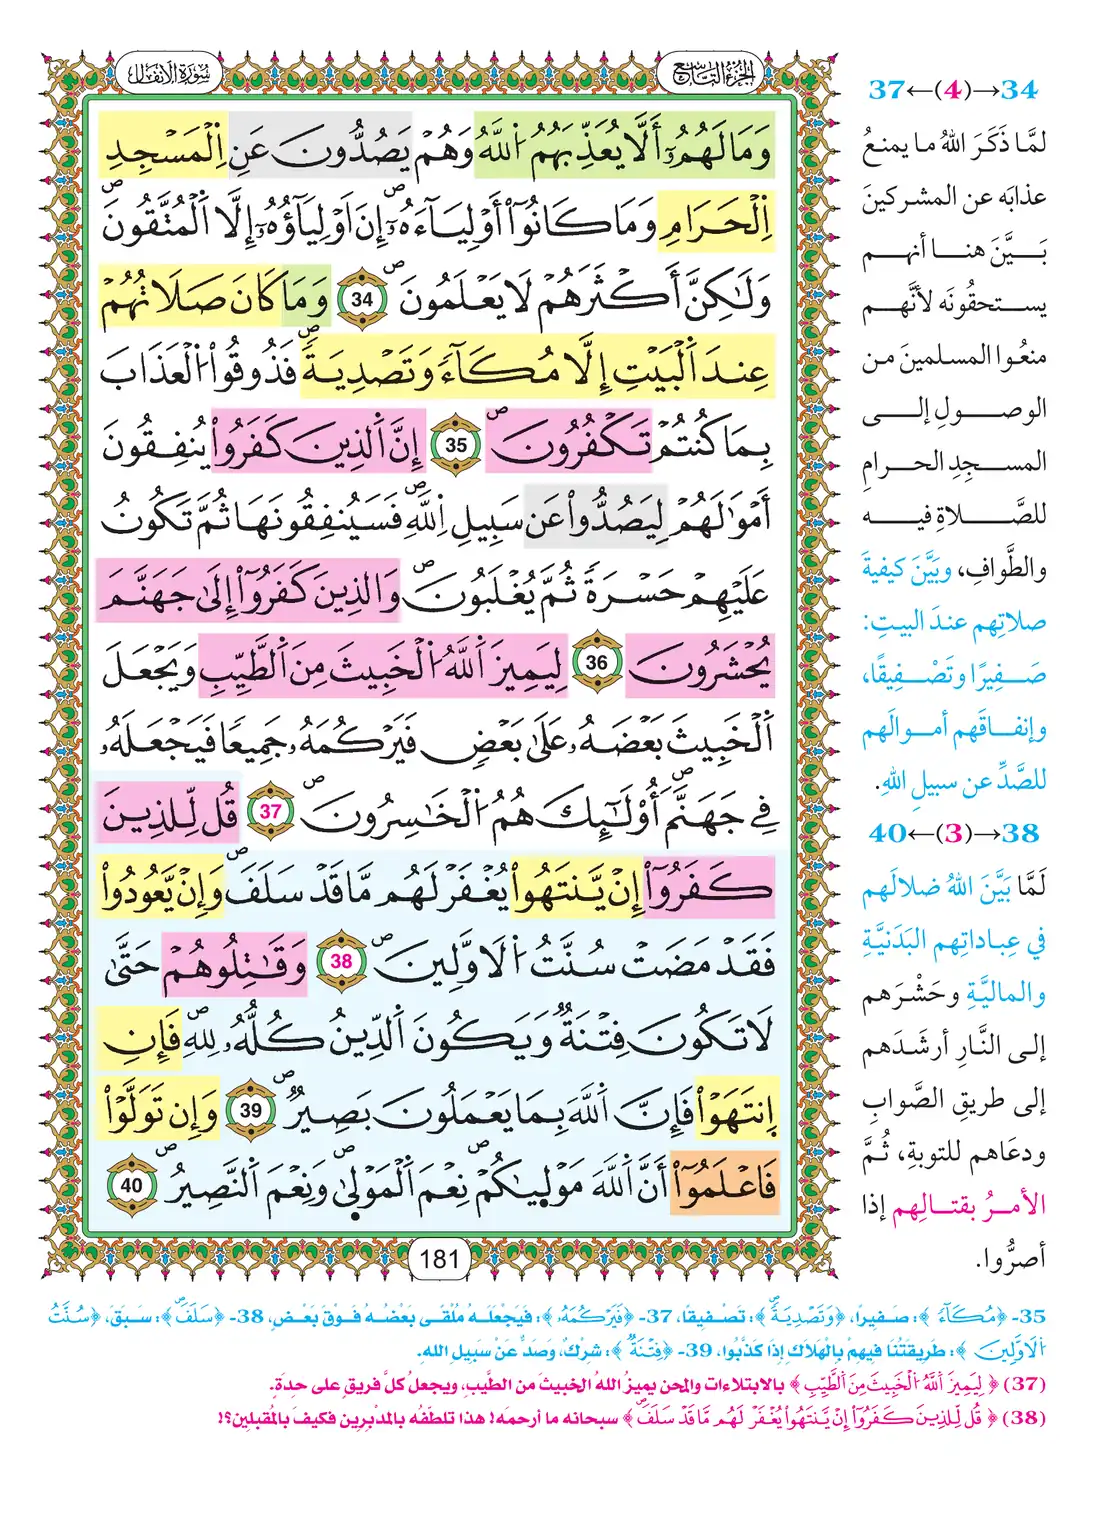 الجزء التاسع
سورة الأنفال
وَمَا لَهُمُۥٓ أَلَّا يُعَذِّبَهُمُ اُ۬للَّهُ وَهُمْ يَصُدُّونَ عَنِ اِ۬لْمَسْجِدِ
اِ۬لْحَرَامِ وَمَا كَانُوٓاْ أَوْلِيَآءَهُۥٓۖ إِنَ اَوْلِيَآؤُهُۥٓ إِلَّا اَ۬لْمُتَّقُونَۖ
وَلَٰكِنَّ أَكْثَرَهُمْ لَا يَعْلَمُونَۖ 34 وَمَا كَانَ صَلَاتُهُمْ
عِندَ اَ۬لْبَيْتِ إِلَّا مُكَآءٗ وَتَصْدِيَةٗۖ فَذُوقُواْ اُ۬لْعَذَابَ
بِمَا كُنتُمْ تَكْفُرُونَۖ 35 إِنَّ اَ۬لذِينَ كَفَرُواْ يُنفِقُونَ
أَمْوَٰلَهُمْ لِيَصُدُّواْ عَن سَبِيلِ اِ۬للَّهِۖ فَسَيُنفِقُونَهَا ثُمَّ تَكُونُ
عَلَيْهِمْ حَسْرَةٗ ثُمَّ يُغْلَبُونَۖ وَالذِينَ كَفَرُوٓاْ إِلَىٰ جَهَنَّمَ
يُحْشَرُونَ 36 لِيَمِيزَ اَ۬للَّهُ اُ۬لْخَبِيثَ مِنَ اَ۬لطَّيِّبِ وَيَجْعَلَ
اَ۬لْخَبِيثَ بَعْضَهُۥ عَلَىٰ بَعْضٖ فَيَرْكُمَهُۥ جَمِيعاٗ فَيَجْعَلَهُۥ
فِي جَهَنَّمَۖ أُوْلَٰٓئِكَ هُمُ اُ۬لْخَٰسِرُونَۖ 37 قُل لِّلذِينَ
كَفَرُوٓاْ إِنْ يَّنتَهُواْ يُغْفَرْ لَهُم مَّا قَدْ سَلَفَۖ وَإِنْ يَّعُودُواْ
فَقَدْ مَضَتْ سُنَّتُ اُ۬لَاوَّلِينَۖ 38 وَقَٰتِلُوهُمْ حَتَّىٰ
لَا تَكُونَ فِتْنَةٞ وَيَكُونَ اَ۬لدِّينُ كُلُّهُۥ لِلهِۖ فَإِنِ
اِ۪نتَهَوْاْ فَإِنَّ اَ۬للَّهَ بِمَا يَعْمَلُونَ بَصِيرٞۖ 39 وَإِن تَوَلَّوْاْ
فَاعْلَمُوٓاْ أَنَّ اَ۬للَّهَ مَوْلَيٰكُمْۖ نِعْمَ اَ۬لْمَوْلَىٰۖ وَنِعْمَ اَ۬لنَّصِيرُۖ 40
181
34→(4)←37
لمَّا ذَكَرَ اللهُ ما يمنعُ
عذابَه عن المشركينَ
بَيَّنَ هنا أنهم
يستحقُونَه لأنَّهم
منعُوا المسلمينَ من
الوصولِ إلى
المسجِدِ الحرامِ
للصَّلاةِ فيه
والطَّوافِ، وبَيَّنَ كيفيةَ
صلاتِهم عندَ البيتِ:
صَفِيرًا وتَصْفِيقًا،
وإنفاقَهم أموالَهم
للصَّدِّ عن سبيلِ اللهِ.
38→(3)←40
لَمَّا بَيَّنَ اللهُ ضلالَهم
في عِباداتِهم البَدَنيَّةِ
والماليَّةِ وحَشْرَهم
إلى النَّارِ أرشَدَهم
إلى طريقِ الصَّوابِ
ودعَاهم للتوبةِ، ثُمَّ
الأمرُ بقتالِهم إذا
أصرُّوا.
35- ﴿مُكَآءٗ﴾: صفيرًا، ﴿وَتَصْدِيَةٗۖ﴾: تصفيقًا، 37- ﴿فَيَرْكُمَهُۥ﴾: فيجعلَهُ مُلْقَى بَعْضُهُ فَوْقَ بَعْضٍ، 38- ﴿سَلَفَۖ﴾: سَبَقَ، ﴿سُنَّتُ
اُ۬لَاوَّلِينَ﴾: طريقَتُنا فيهمْ بِالْهَلاكِ إذَا كَذَّبُوا، 39- ﴿فِتْنَةٞ﴾: شركٌ، وصدٌّ عنْ سبيلِ اللهِ.
(37) ﴿لِيَمِيزَ اَ۬للَّهُ اُ۬لْخَبِيثَ مِنَ اَ۬لطَّيِّبِ﴾ بالابتلاءات والمحن يميزُ اللهُ الخبيثَ من الطَّيب، ويجعلُ كلَّ فريقٍ على حدةٍ.
(38) ﴿قُل لِّلذِينَ كَفَرُوٓاْ إِنْ يَّنتَهُواْ يُغْفَرْ لَهُم مَّا قَدْ سَلَفَۖ﴾ سبحانه ما أرحمَه! هذا تلطُّفُه بالمدْبِرِين فكيفَ بالمُقبلِين؟!